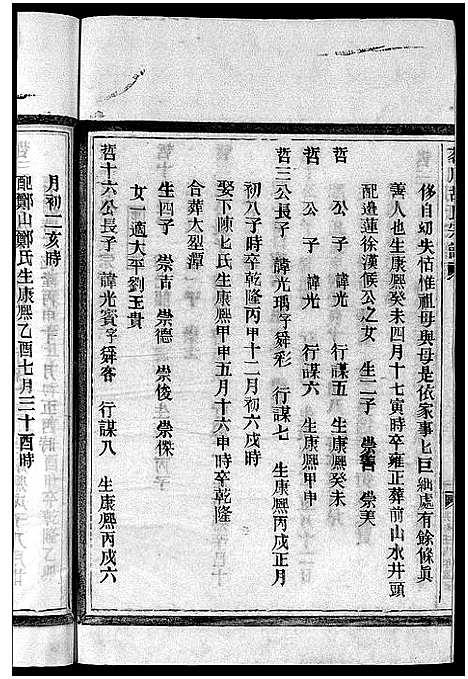 侈自幼失怙惟祖母與母是依家事匕巨細處有餘條眞
善人也生康熙癸未四月十七寅時卒雍正葬前山水井頭
配進蓮徐漢候公之女 生二子 崇舊 崇美
哲 公子 諱光 行謀五 生康熙癸未
哲 公子 諱光 行謀六 生康熙甲申
哲三公長子 諱光瑀字舜彩 行謀七 生康熙丙戌正月
初八子時卒乾隆丙甲十二月初六戌時
娶下陳匕氏生康熙甲申五月十六申時卒乾隆
合葬大壟潭
生四子 崇古 崇德 崇俊 崇傑
女一適大平劉玉貴
哲十六公長子 諱光賓字舜客 行謀八 生康熙丙戌六
月初二亥時
配鄭山鄭氏生康熙乙酉七月三十酉時